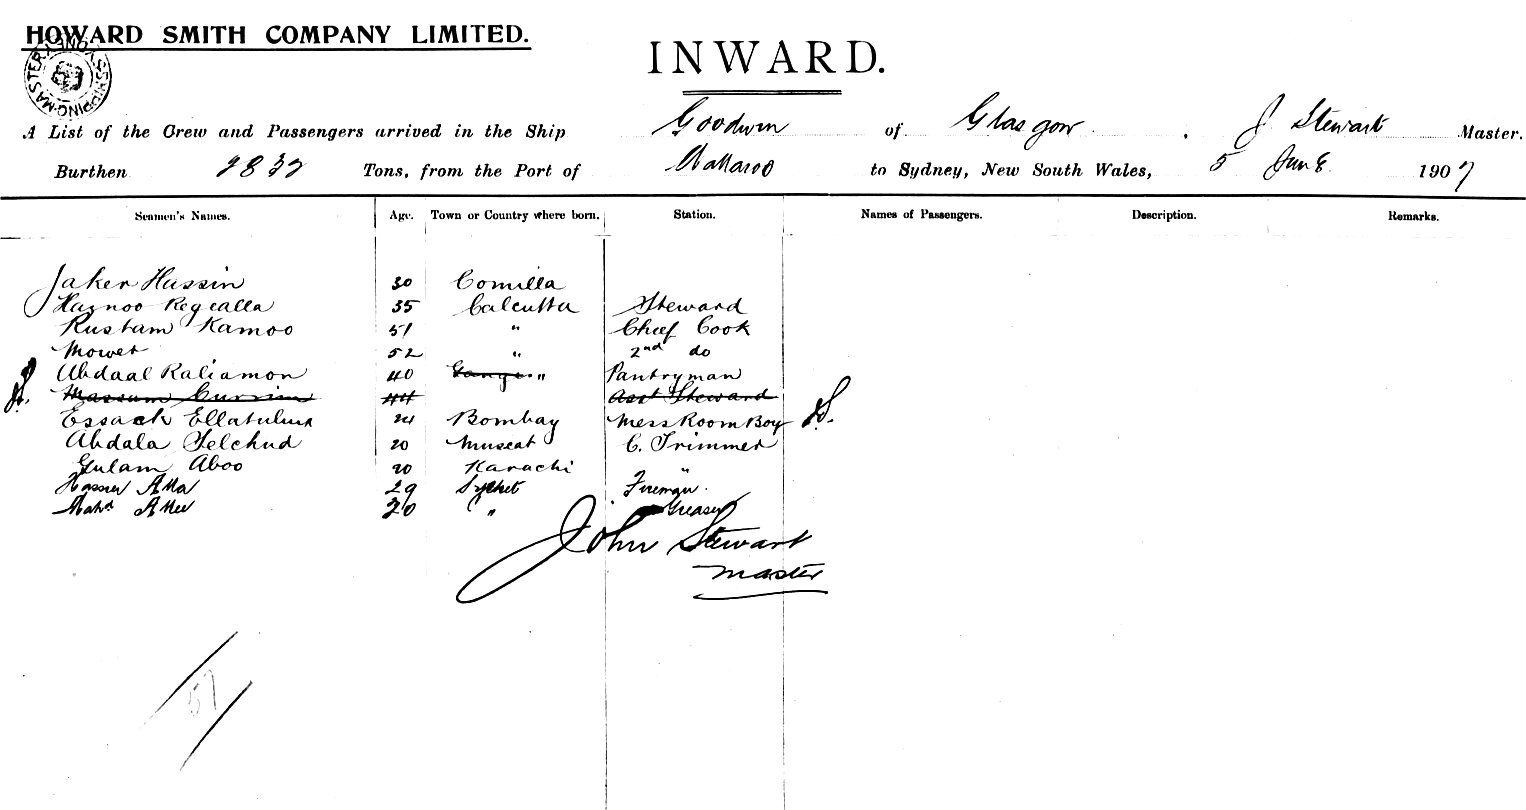 HOWARD SMITH COMPANY LIMITED.
SHIPPING MASTER SYDNEY
INWARD.
A List of the Crew and Passengers arrived in the Ship Goodwin of Glasgow, J Stewart Master.
Burthen 2832 Tons, from the Port of Wallaroo to Sydney, New South Wales, 5 June 1907
Seamen's Names. Age. Town or Country where born. Station. Names of Passengers. Description. Remarks.
Jaker Hussin 30 Comilla
Regealla 35 Calcutta Steward
Rustam Kamoo 51 " Chief Cook
Mower 52 " 2nd do
Abdaal Raliamon 40 " Pantryman
Massum Currim 44 Asst Steward
Essack 24 Bombay Mess Room Boy
Abdala Selchud 20 Muscat C. Trimmer
Gulam Aboo 20 Karachi "
29 Sylhet Fireman
30 " Greaser
John Stewart
Master
57